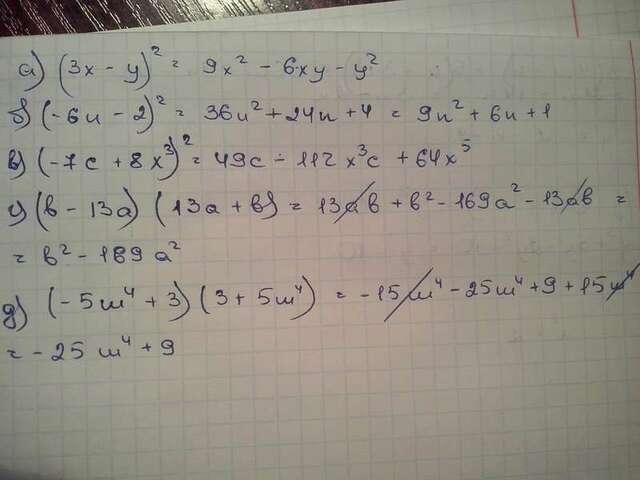 а) (3x - y)² = 9x² - 6xy - y²
б) (-6и - 2)² = 36и² + 24и + 4 = 9и² + 6и + 1
в) (-7c + 8x³)² = 49c - 112x³c + 64x⁵
г) (в - 13a) (13a + в) = 13aв + в² - 169a² - 13aв =
= в² - 169a²
д) (-5ш⁴ + 3) (3 + 5ш⁴) = -15ш⁴ - 25ш⁴ + 9 + 15ш⁴
= -25ш⁴ + 9